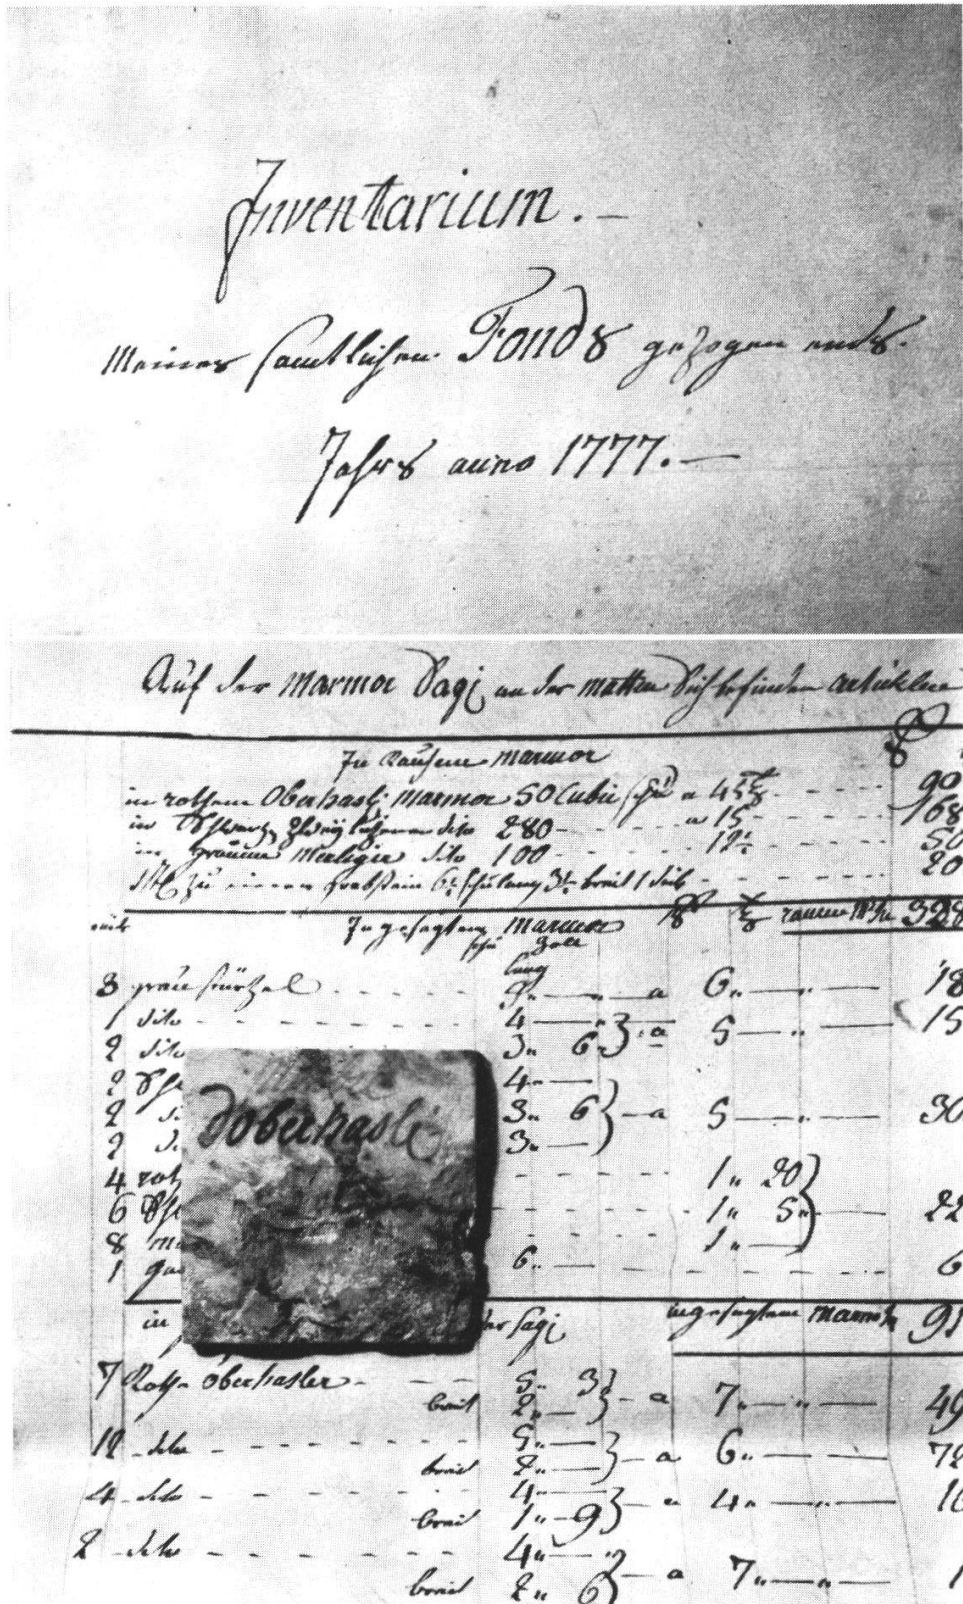 Inventarium. —
Meines samtlichen Fonds gezogen ends.
Jahrs anno 1777. —
Auf der Marmor Sagi an der matten Sich befinden articklen
In Rauhem Marmor
in rothem Oberhasli Marmor 50 Cubic a 45 90
in Schwartz dito 280 a 15 168
in grauem Merligen dito 100 12½ 50
zu einem grabstein 6½ schu lang 3½ breit 1 dick 20
rauem 328
In gesagtem Marmor
schu Zoll
lang
3 grau 9 " — " a 6 " — " — 18
1 dito 4 — "
2 dito 3 " 6 } a 5 — " — 15
2 Sch 4 " —
2 3 " 6 } a 5 — " — 30
2 3 " —
4 rot 1 " 20
6 Sch 1 " 5 " } 22
8 1 " —
1 6 " — 6
Doberhasli
in der sagi in gesagtem Marmor 91
7 Roth Oberhasler 5 " 3
breit 2 " — } a 7 " — " — 49
12 dito 5 " —
breit 2 " — } a 6 " — " — 72
4 dito 4 " —
breit 1 " 9 } a 4 " — " — 16
2 dito 4 " — "
breit 2 " 6 } a 7 " — " — 1